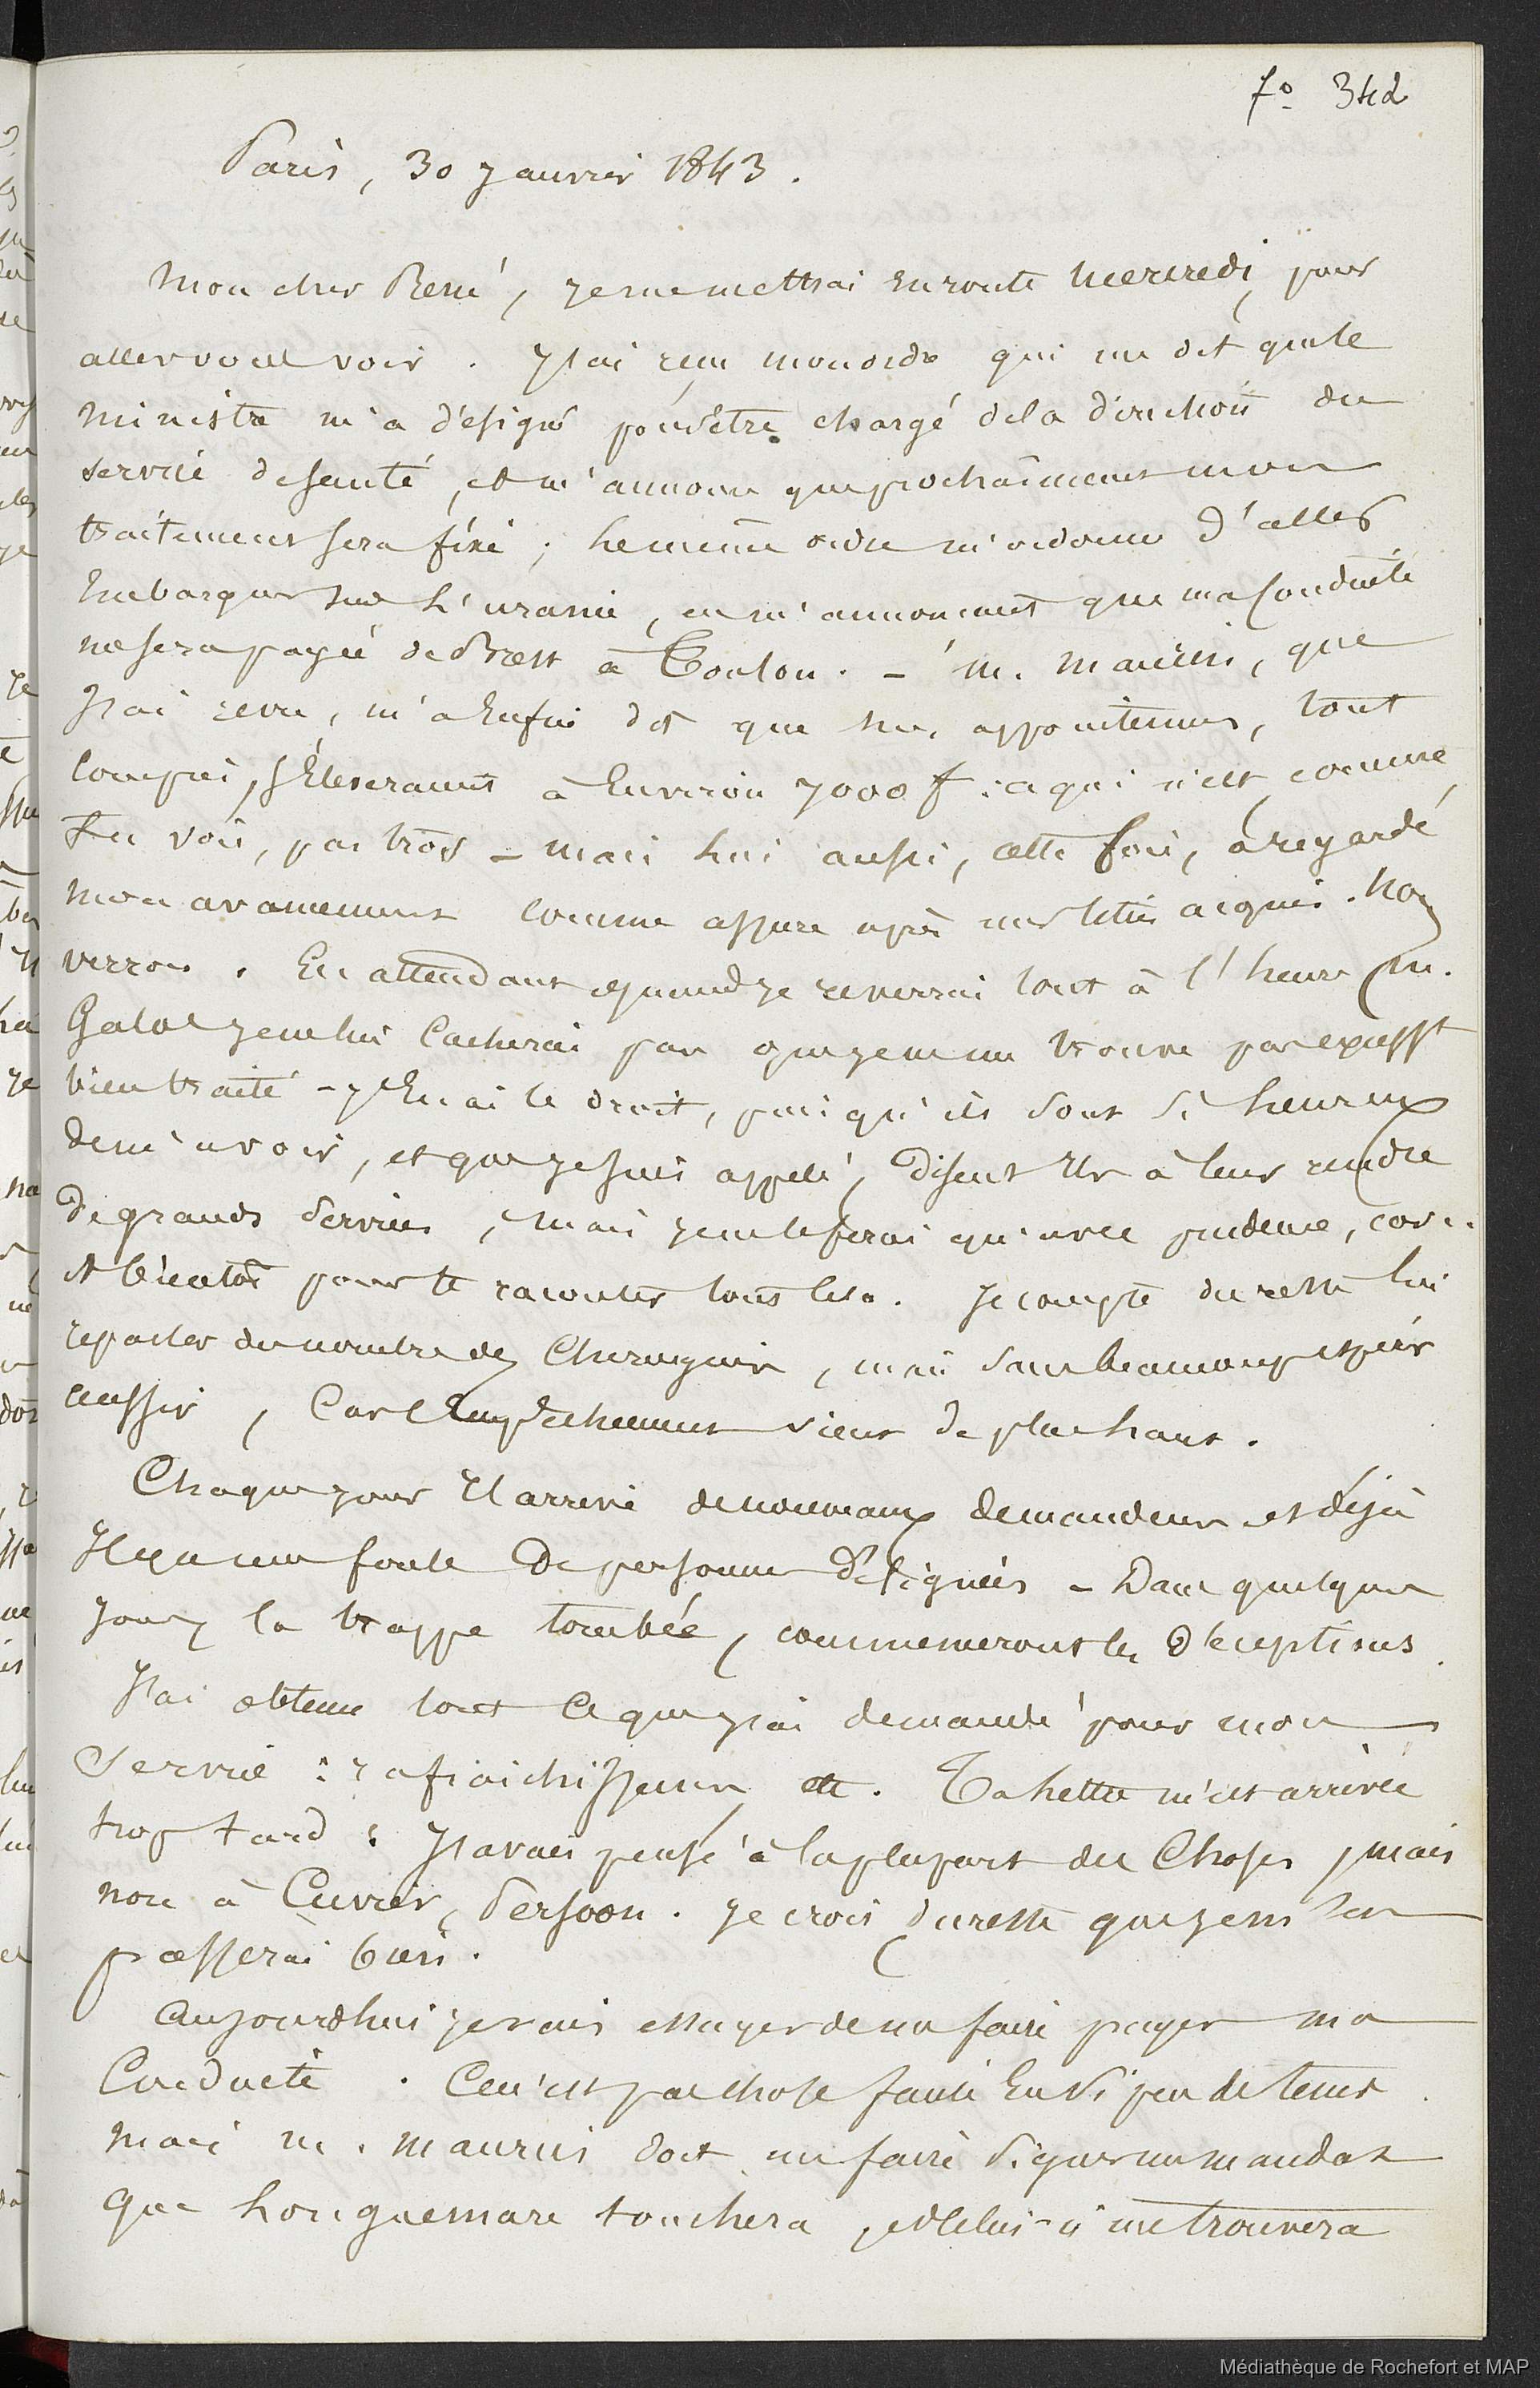 fo 342
Paris, 30 janvier 1843.
Mon cher René, je me mettrai en route mercredi, pour
aller vous voir. J'ai reçu mon ordre qui me dit que le
ministre m'a désigné pour être chargé de la direction du
service de santé, et m'annonce que prochainement mon
traitement sera fixé; le même ordre m'ordonne d'aller
embarquer sur l'uranie, en m'annonçant que ma conduite
me sera payée de Brest à Toulon. - M. Maurin, que
j'ai revu, m'a enfin dit que mes appointemens, tout
compris, s'éleveraient à environ 7000 f. ce qui n'est, comme
tu vois, pas trop - mais lui aussi, cette fois, a regardé
mon avancement comme assuré après mes acquis. Nous
verrons. En attendant quand je reverrai tout à l'heure M.
je ne lui cacherai pas que je ne me trouve pas
bien traité - j'en ai le droit, puisqu'ils sont si heureux
de m'avoir, et que je suis appelé, disent ils à leur rendre
de grands services, mais je ne le ferai qu'avec prudence,
A bientôt pour te raconter tout cela. Je compte du reste lui
reparler du nombre des Chirurgiens, mais sans beaucoup espérer
, car l'empêchement vient de plus haut.
Chaque jour il arrive de nouveaux demandeurs et déjà
il y a une foule de personnes désignées - Dans quelques
jours la trappe tombée, commenceront les déceptions.
J'ai obtenu tout ce que j'ai demandé pour mon
service: rafraichisseurs etc. Ta lettre m'est arrivée
trop tard: j'avais pensé à la plupart des choses, mais
non à Cuvier, Persoon. Je crois du reste que je m'en
passerai bien.
Aujourdhui je vais essayer de me faire payer ma
Conduite. Ce n'est pas chose facile en si peu de tems.
mais M. Maurin doit me faire signer un mandat
que Houguemare touchera, et celui-ci me trouvera
Médiathèque de Rochefort et MAP